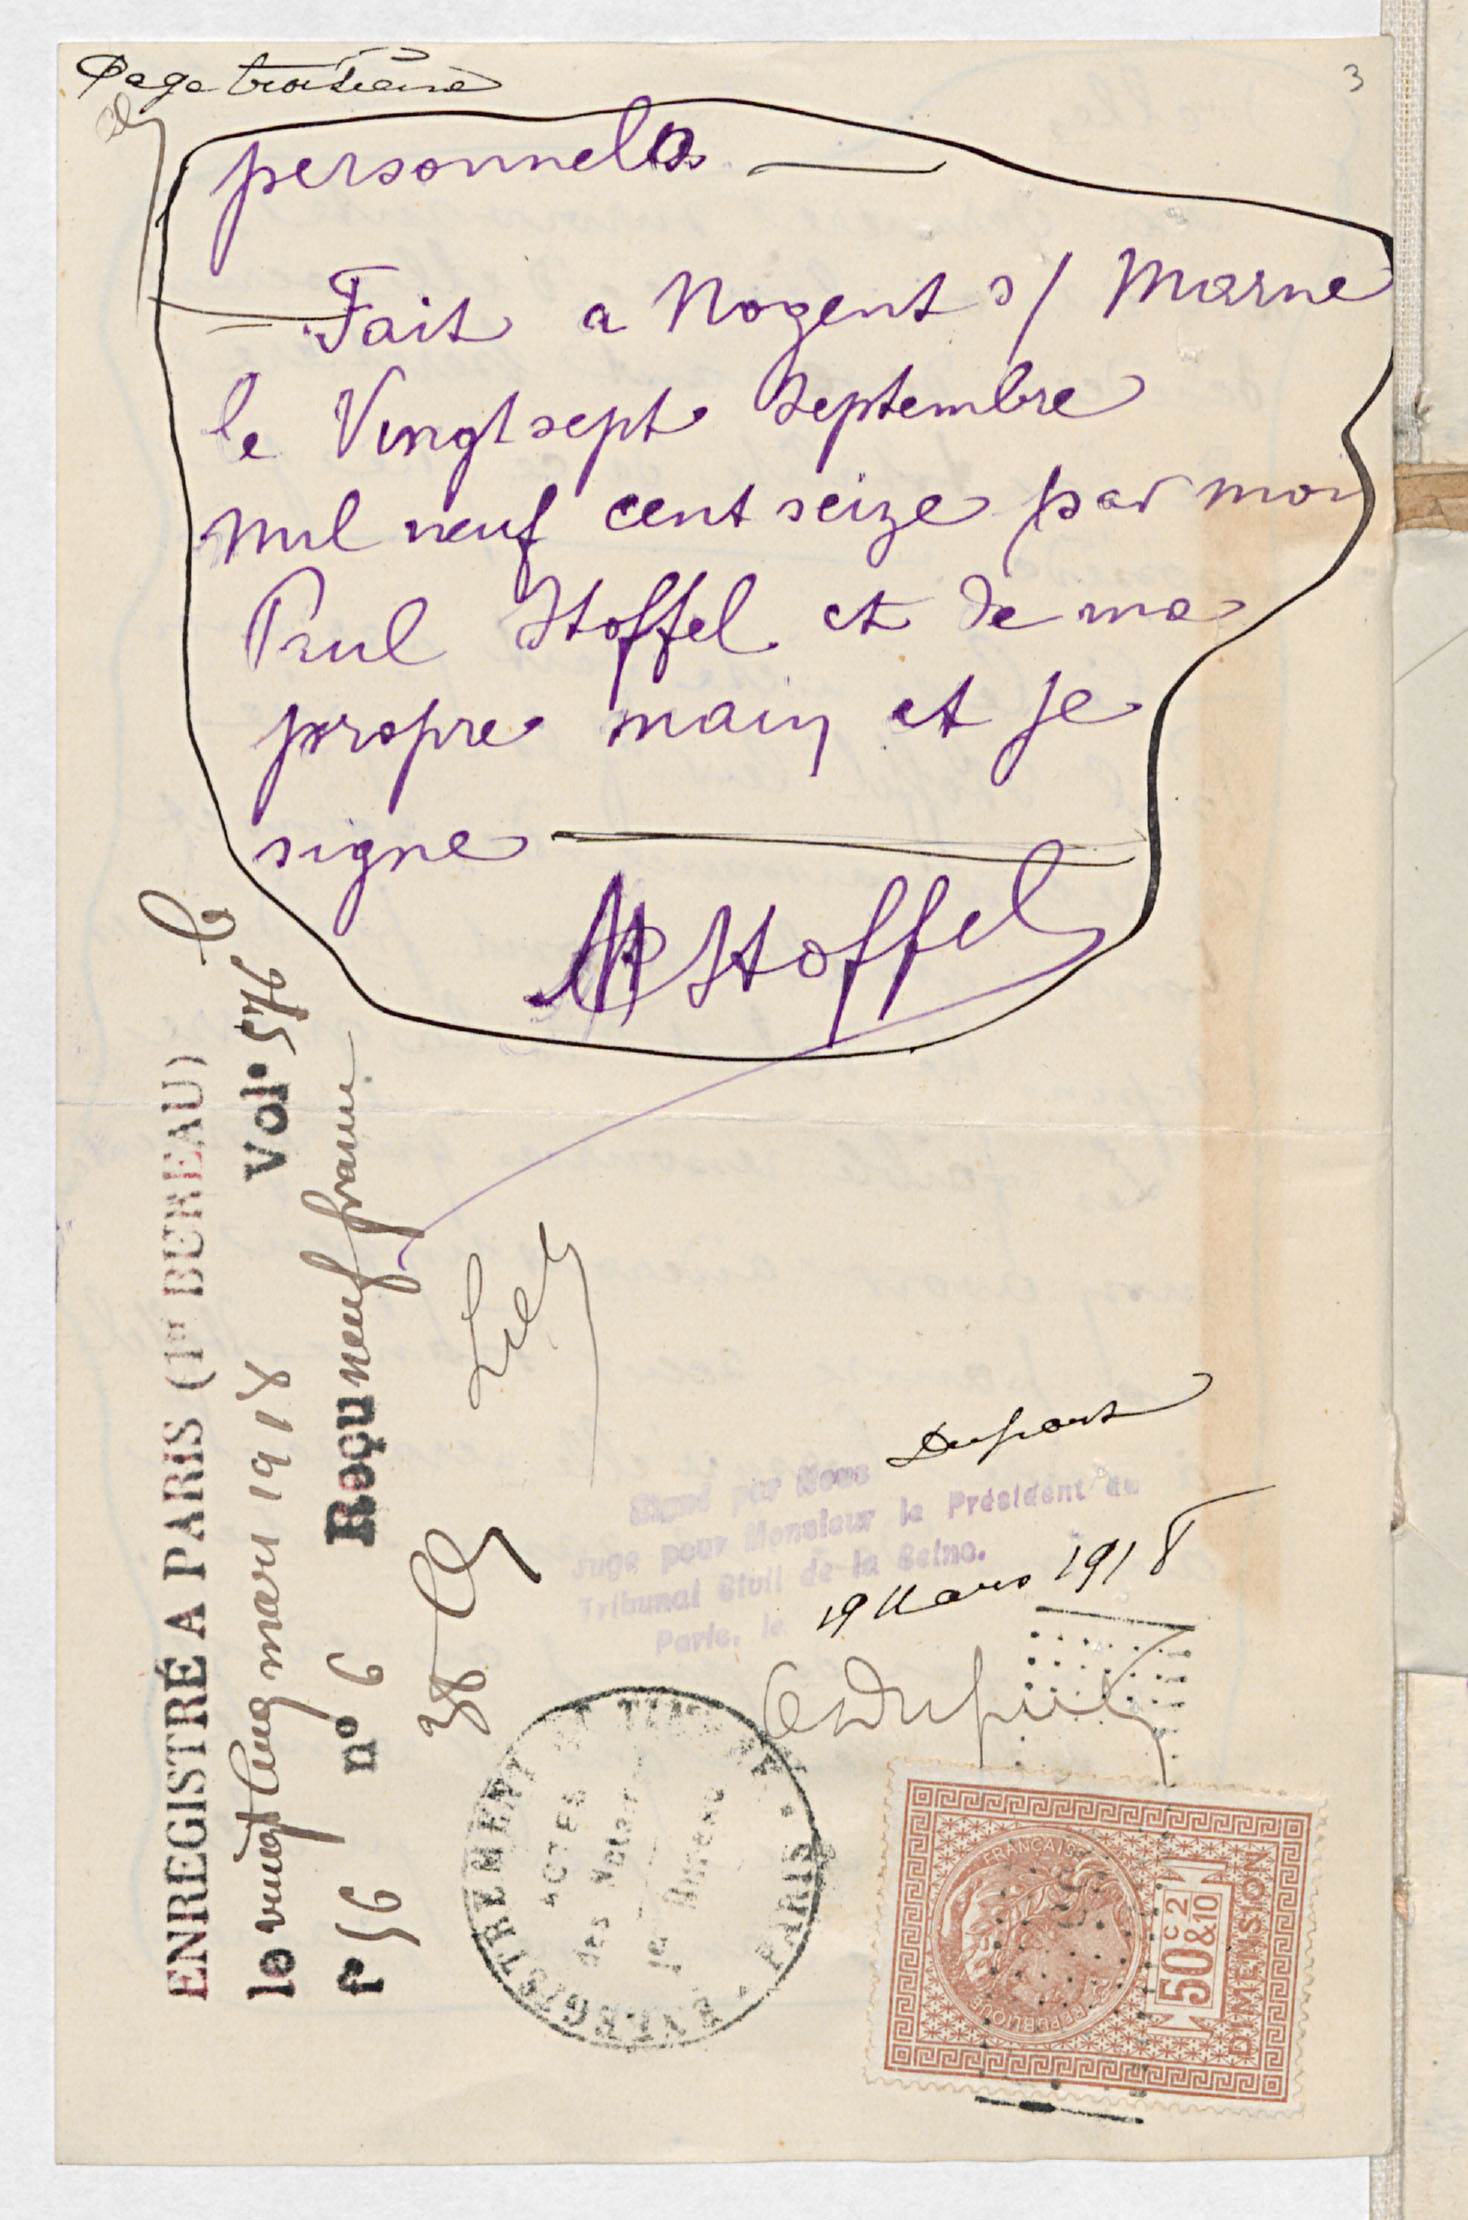 Page troisième
3
personnels
Fait a Nogent s/ Marne
le Vingt sept Septembre
mil neuf cent seize par moi
Paul Stoffel et de ma
propre main et je
signe
Stoffel
ENREGISTRÉ A PARIS (1er BUREAU)
le vingt cinq mars 1918 Vol. 546 C
Fo 56 no 6 Reçu neuf francs
Dupont
Signé par Nous
Juge pour Monsieur le Président du
Tribunal Civil de la Seine.
Paris, le 19 Mars 1918
ENREGISTREMENT PARIS
ACTES
des Notaires
1er Bureau
RÉPUBLIQUE FRANÇAISE
50c
2
&10
DIMENSION